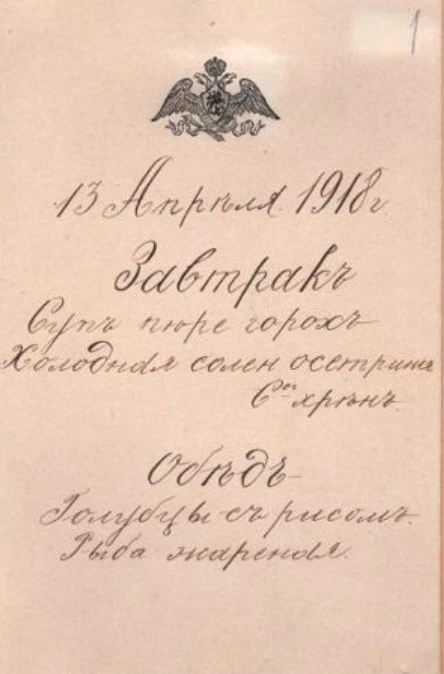 1
13 Апрѣля 1918 г
Завтракъ
Супъ пюре горохъ
Холодная солен осетрина
Соу хрѣнъ.
Обѣдъ
Голубцы съ рисомъ.
Рыба жареная.